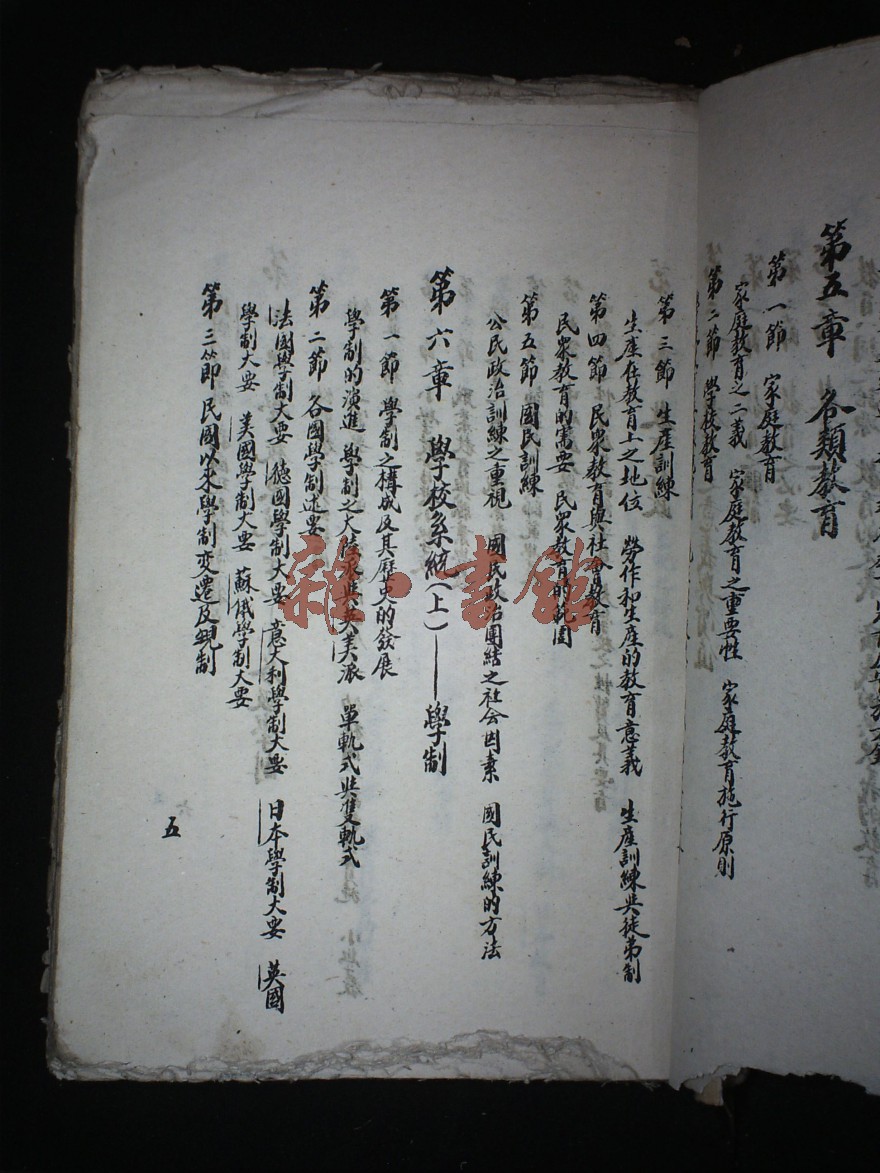 第五章 各類教育
第一節 家庭教育
家庭教育之二義 家庭教育之重要性 家庭教育施行原則
第二節 學校教育
第三節 生產訓練
生產在教育上之地位 勞作和生産的教育意義 生產訓練與徒弟制
第四節 民衆教育與社會教育
民衆教育的需要 民衆教育的範圍
第五節 國民訓練
公民政治訓練之重視 國民政治團結之社会因素 國民訓練的方法
第六章 學校系統(上)——學制
第一節 學制之構成及其歷史的發展
學制的演進 學制之大陸派與英美派 單軌式與雙軌式
第二節 各國學制述要
法國學制大要 德國學制大要 意大利學制大要 日本學制大要 英國
學制大要 美國學制大要 蘇俄學制大要
第三節 民國以來學制变遷及現制
五
雜·書館